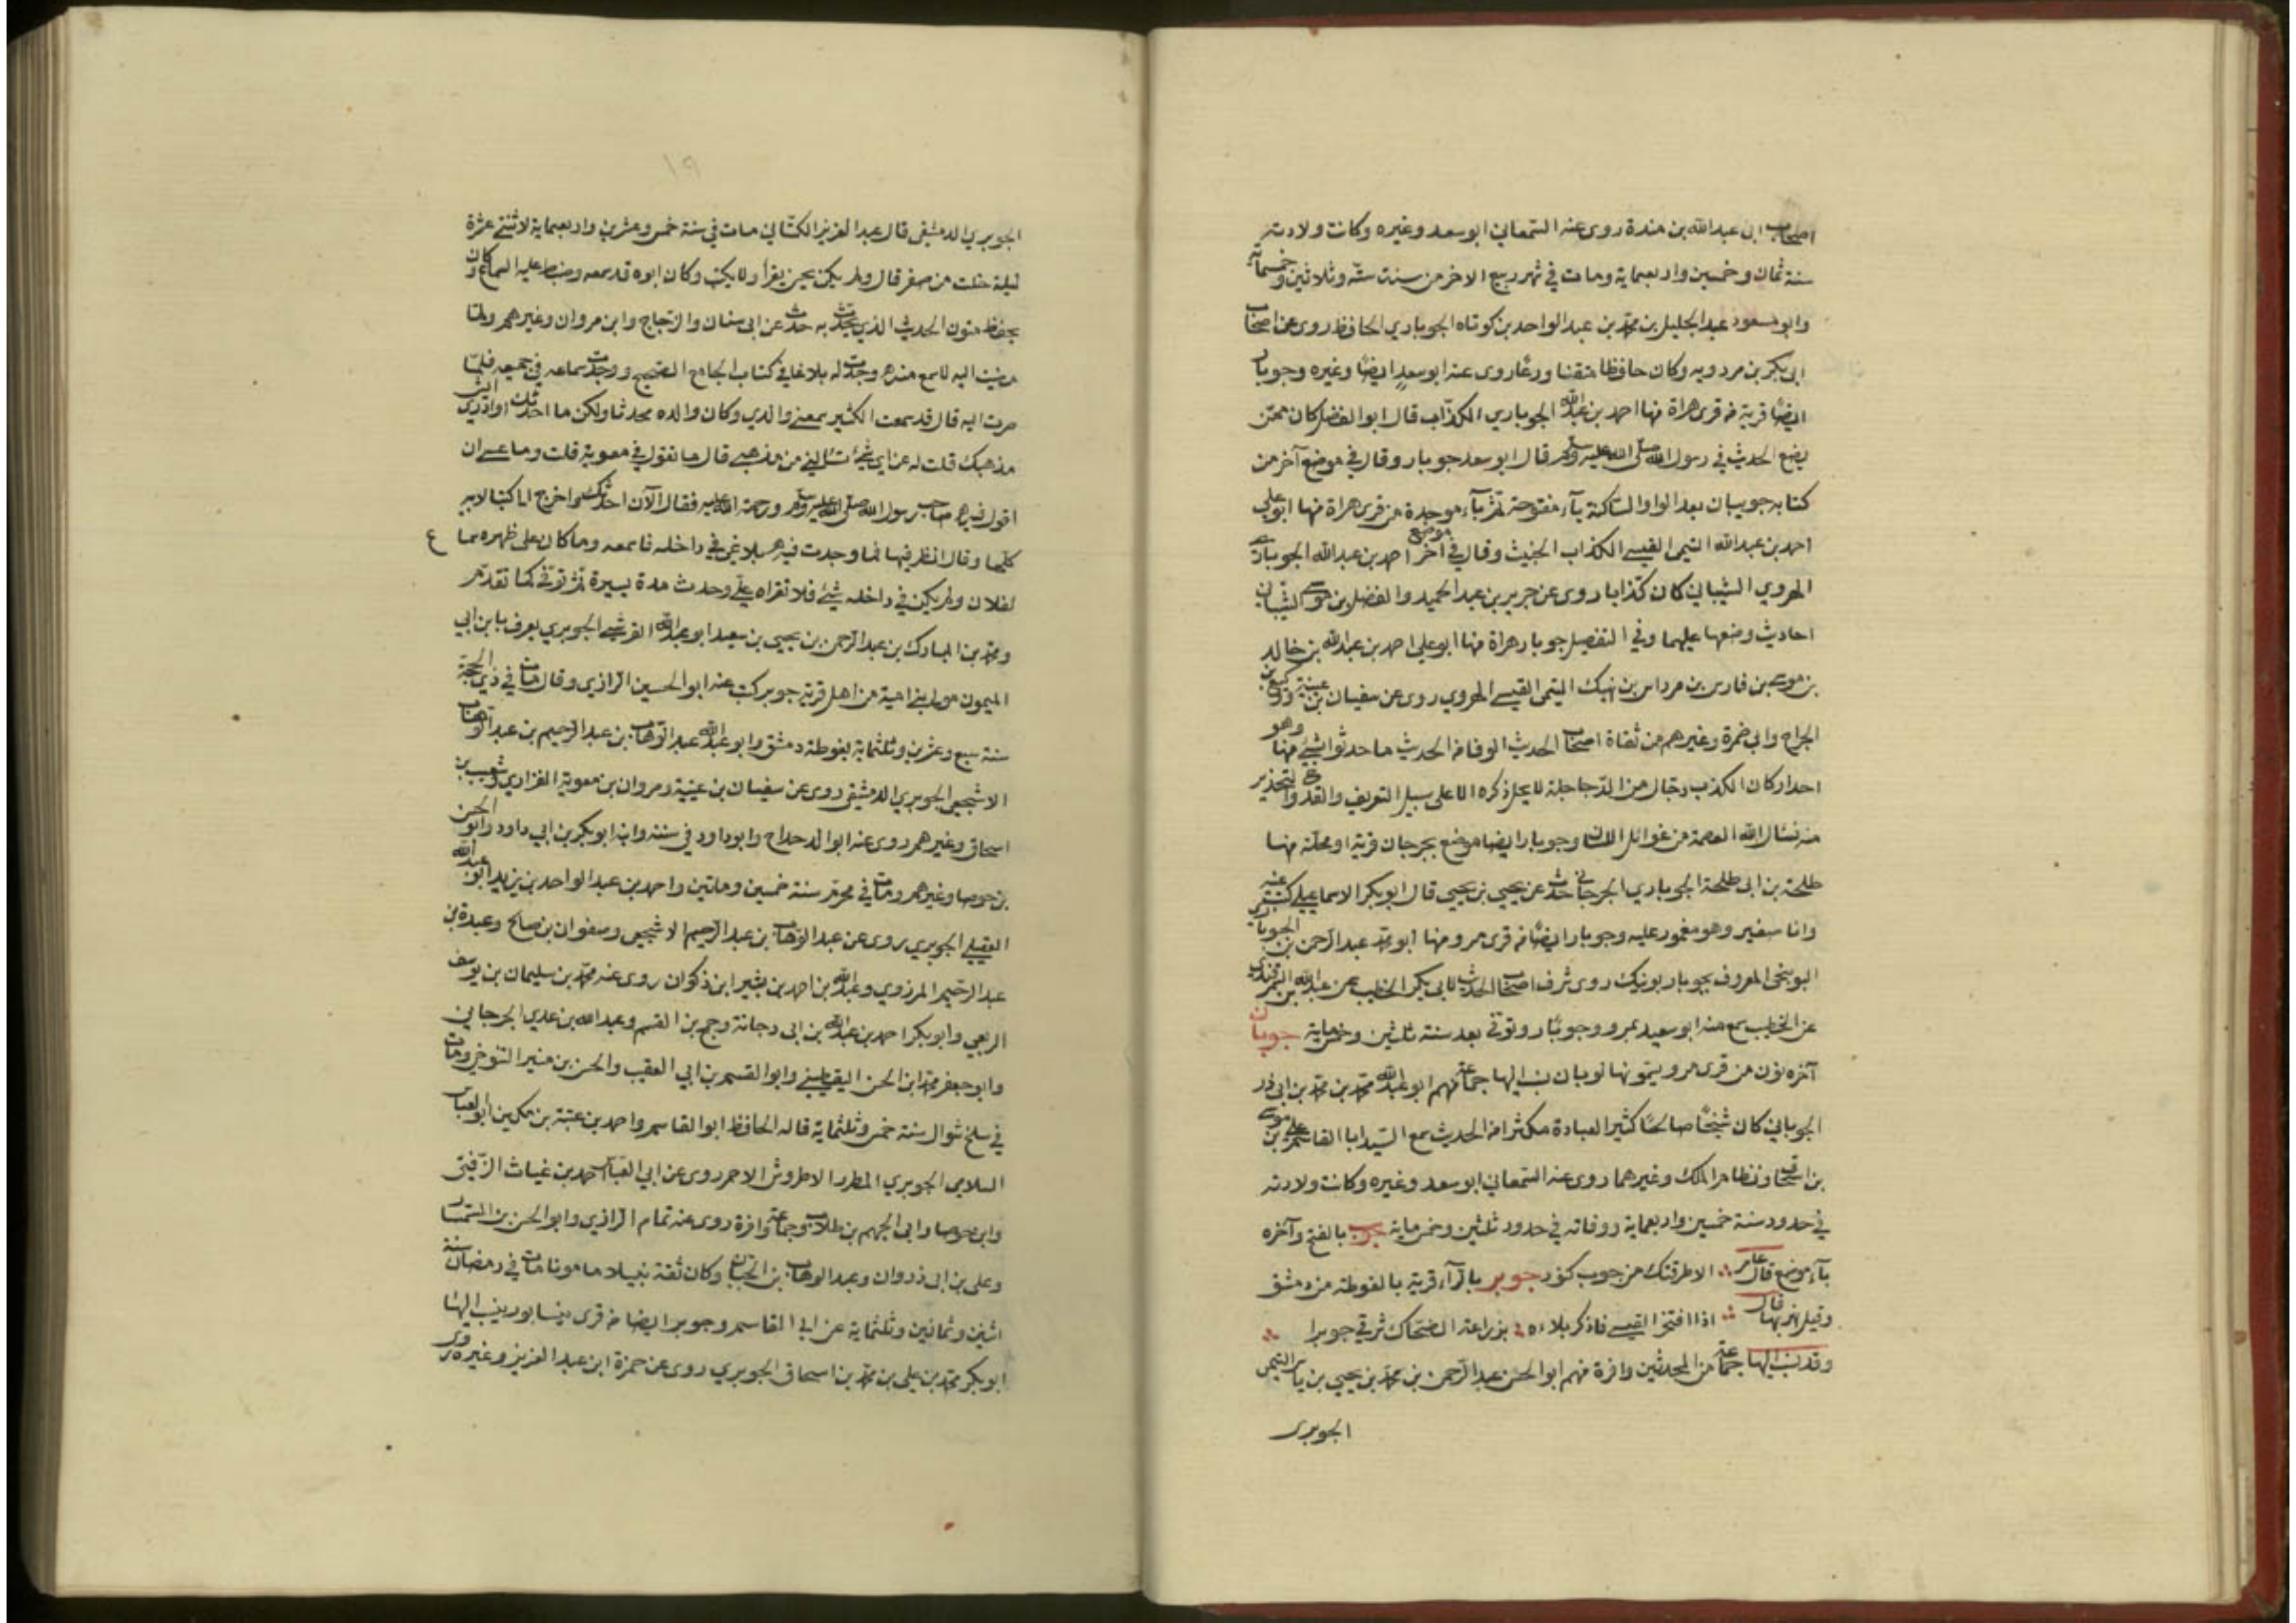 اصحاب ابى عبدالله بن مندة روى عنه السمعاني ابو سعد وغيره وكانت ولادته
سنة ثمان وخمسين واربعماية ومات في شهر ربيع الاخر من سنت ستّه وثلاثين وخمسماية
وابو مسعود عبد الجليل بن محمّد بن عبد الواحد بن كوتاه الجوباري الحافظ روى عن اصحاب
ابى بكر بن مردويه وكان حافظا متقنا ورعًا روى عنه ابو سعدٍ ايضًا وغيره وجوبار
ايضًا قرية من قرى هراة منها احمد بن عبدالله الجوباري الكذّاب قال ابو الفضل كان ممّن
يضع الحديث في رسول الله صلى الله عليه وسلم قال ابو سعد جوبار وقال في موضع آخر من
كتابه جويبان بعد الواو الساكنة يآء مفتوحة ثمّ بآء موحدة من قرى هراة منها ابو على
احمد بن عبدالله التيمى القيسے الكذاب الخبيث وقال في موضع آخر احمد بن عبدالله الجوبارى
الهروي الشيبانى كان كذابا روى عن جرير بن عبد الحميد والفضل بن موسے الشيبانى
احاديث وضعها عليهما وفي الفيصل جوبار هراة منها ابو على احمد بن عبدالله بن خالد
بن موسے بن فارس بن مرداس بن نهيك التيمى القيسے الهروي روى عن سفيان بن عيينة ووكيع بن
الجراح وابى ضمرة وغيرهم من ثقاة اصحاب الحديث الوفا من الحديث ما حدثوا بشئ منها وهو
احد اركان الكذب دجّال من الدّجاجلة لا يحل ذكره الا على سبيل التعريف والقدح والتحذير
منه نسئال الله العصمة من غوائل اللسان وجوبار ايضا موضع بجرجان قرية او محلّة منها
طلحة بن ابى طلحة الجوباري الجرجانى حدّث عن يحيى بن يحيى قال ابو بكر الاسماعيلے كتبت عنه
وانا صغير وهو مغمور عليه وجوبار ايضًا من قرى مرو منها ابو محمد عبد الرحمن بن الجوبارى
البوينجى المعروف بجوبار بوينك روى شرف اصحاب الحديث لابى بكر الخطيب عن عبدالله بن السمرقندى
عن الخطيب سمع منه ابو سعيد بمرو وجوبار وتوفى بعد سنة ثلثين وخمسماية جوبان
آخره نون من قرى مرو يسمّونها كوبان نسب اليها جماعة منهم ابو عبدالله محمّد بن محمّد بن ابى ذر
الجوبانى كان شيخًا صالحًا كثير العبادة مكثرا من الحديث سمع السّيد ابا القاسم على بن موسے
بن اسحاق ونظام الملك وغيرهما روى عنه السمعاني ابو سعد وغيره وكانت ولادته
في حدود سنة خمسين واربعماية ووفاته في حدود ثلثين وخمسماية جوب بالفتح وآخره
بآء موضع قال عامر الا طرقتك من جوب كنود جوبر بالرآء قرية بالغوطة من دمشق
وقيل نهر بها قال اذا افتخر القيسے فاذكر بلاءه بزراعة الضحّاك شرقي جوبرا
وقد نسب اليها جماعة من المحدثين وافرة منهم ابو الحسن عبد الرّحمن بن محمّد بن يحيى بن ياسر التيمى
الجوبرى
١٩
الجوبري الدمشقى قال عبد العزيز الكتّانى مات في سنة خمس وعشرين واربعماية لاثنتے عشرة
ليلة خلت من صفر قال ولم يكن يحسن يقرأ ولا يكتب وكان ابوه قد سمعه وضبط عليه السماع وكان
يحفظ متون الحديث الذي يحدّث به حدّث عن ابى سنان والزجاج وابن مروان وغيرهم ولمّا
مضيت اليه لاسمع منه وجدت له بلاغا في كتاب الجامع الصحيح ووجدت سماعه في جميعه فلمّا
صرت اليه قال قد سمعت الكثير سمعنے والدي وكان والده محدثا ولكن ما احدثك او ادرى ايش
مذهبك قلت له عن اى شئ تسئلنے من مذهبے قال ما تقول في معوية قلت وما عسے ان
اقول فيه صاحب رسول الله صلى الله عليه وسلم ورحمة الله عليه فقال الآن احدثك واخرج الىّ كتبا لابيه
كلها وقال انظر فيها فما وجدت فيه بلاغى في داخله فاسمعه وما كان على ظهره سماع
لفلان ولم يكن في داخله شئ فلا تقراه علىّ وحدث مدة يسيرة ثمّ توفى كما تقدّم
ومحمّد بن المبارك بن عبد الرّحمن بن يحيى بن سعيد ابو عبدالله القرشے الجوبري يعرف بابن ابى
الميمون مولى بنے امية من اهل قرية جوبر كتب عنه ابو الحسين الرازي وقال مات في ذى الحجّة
سنة سبع وعشرين وثلثماية بغوطة دمشق وابو عبدالله عبد الوهاب بن عبد الرّحيم بن عبد الوهاب
الاشجعى الجوبري الدمشقى روى عن سفيان بن عيينة ومروان بن معوية الفزاري وشعيب بن
اسحاق وغيرهم روى عنه ابو الدحداح وابو داود في سننه وابنه ابو بكر بن ابى داود وابو الحسن
بن جوصا وغيرهم ومات في محرّم سنة خمسين وماتين واحمد بن عبد الواحد بن يزيد ابو عبدالله
العقيلے الجوبري روى عن عبد الوهاب بن عبد الرّحيم الاشجعى وصفوان بن صالح وعبدة بن
عبد الرّحيم المروزي وعبدالله بن احمد بن بشير ابن ذكوان روى عنه محمّد بن سليمان بن يوسف
الربعى وابو بكر احمد بن عبدالله بن ابى دجانة وجمح بن القسم وعبدالله بن عدي الجرجانى
وابو جعفر محمّد ابن الحسن اليقطينے وابو القسم بن ابى العقب والحسن بن منير التنوخى ومات
في سلخ شوال سنة خمس وثلثماية قاله الحافظ ابو القاسم واحمد بن عتبة بن مكين ابو العباس
السلامى الجوبري المطرز الاطروش الاحمر روى عن ابى العبّاس احمد بن غياث الزّفتى
وابن جوصا وابى الجهم بن طلاب وجماعة وافرة روى عنه تمام الرازي وابو الحسن بن السمسار
وعلى بن ابى ذروان وعبد الوهاب بن الجبان وكان ثقة نبيلا مامونا مات في رمضان سنة
اثنين وثمانين وثلثماية عن ابى القاسم وجوبر ايضا من قرى نيسابور ينسب اليها
ابو بكر محمّد بن على بن محمّد بن اسحاق الجوبري روى عن حمزة ابن عبد العزيز وغيره روى